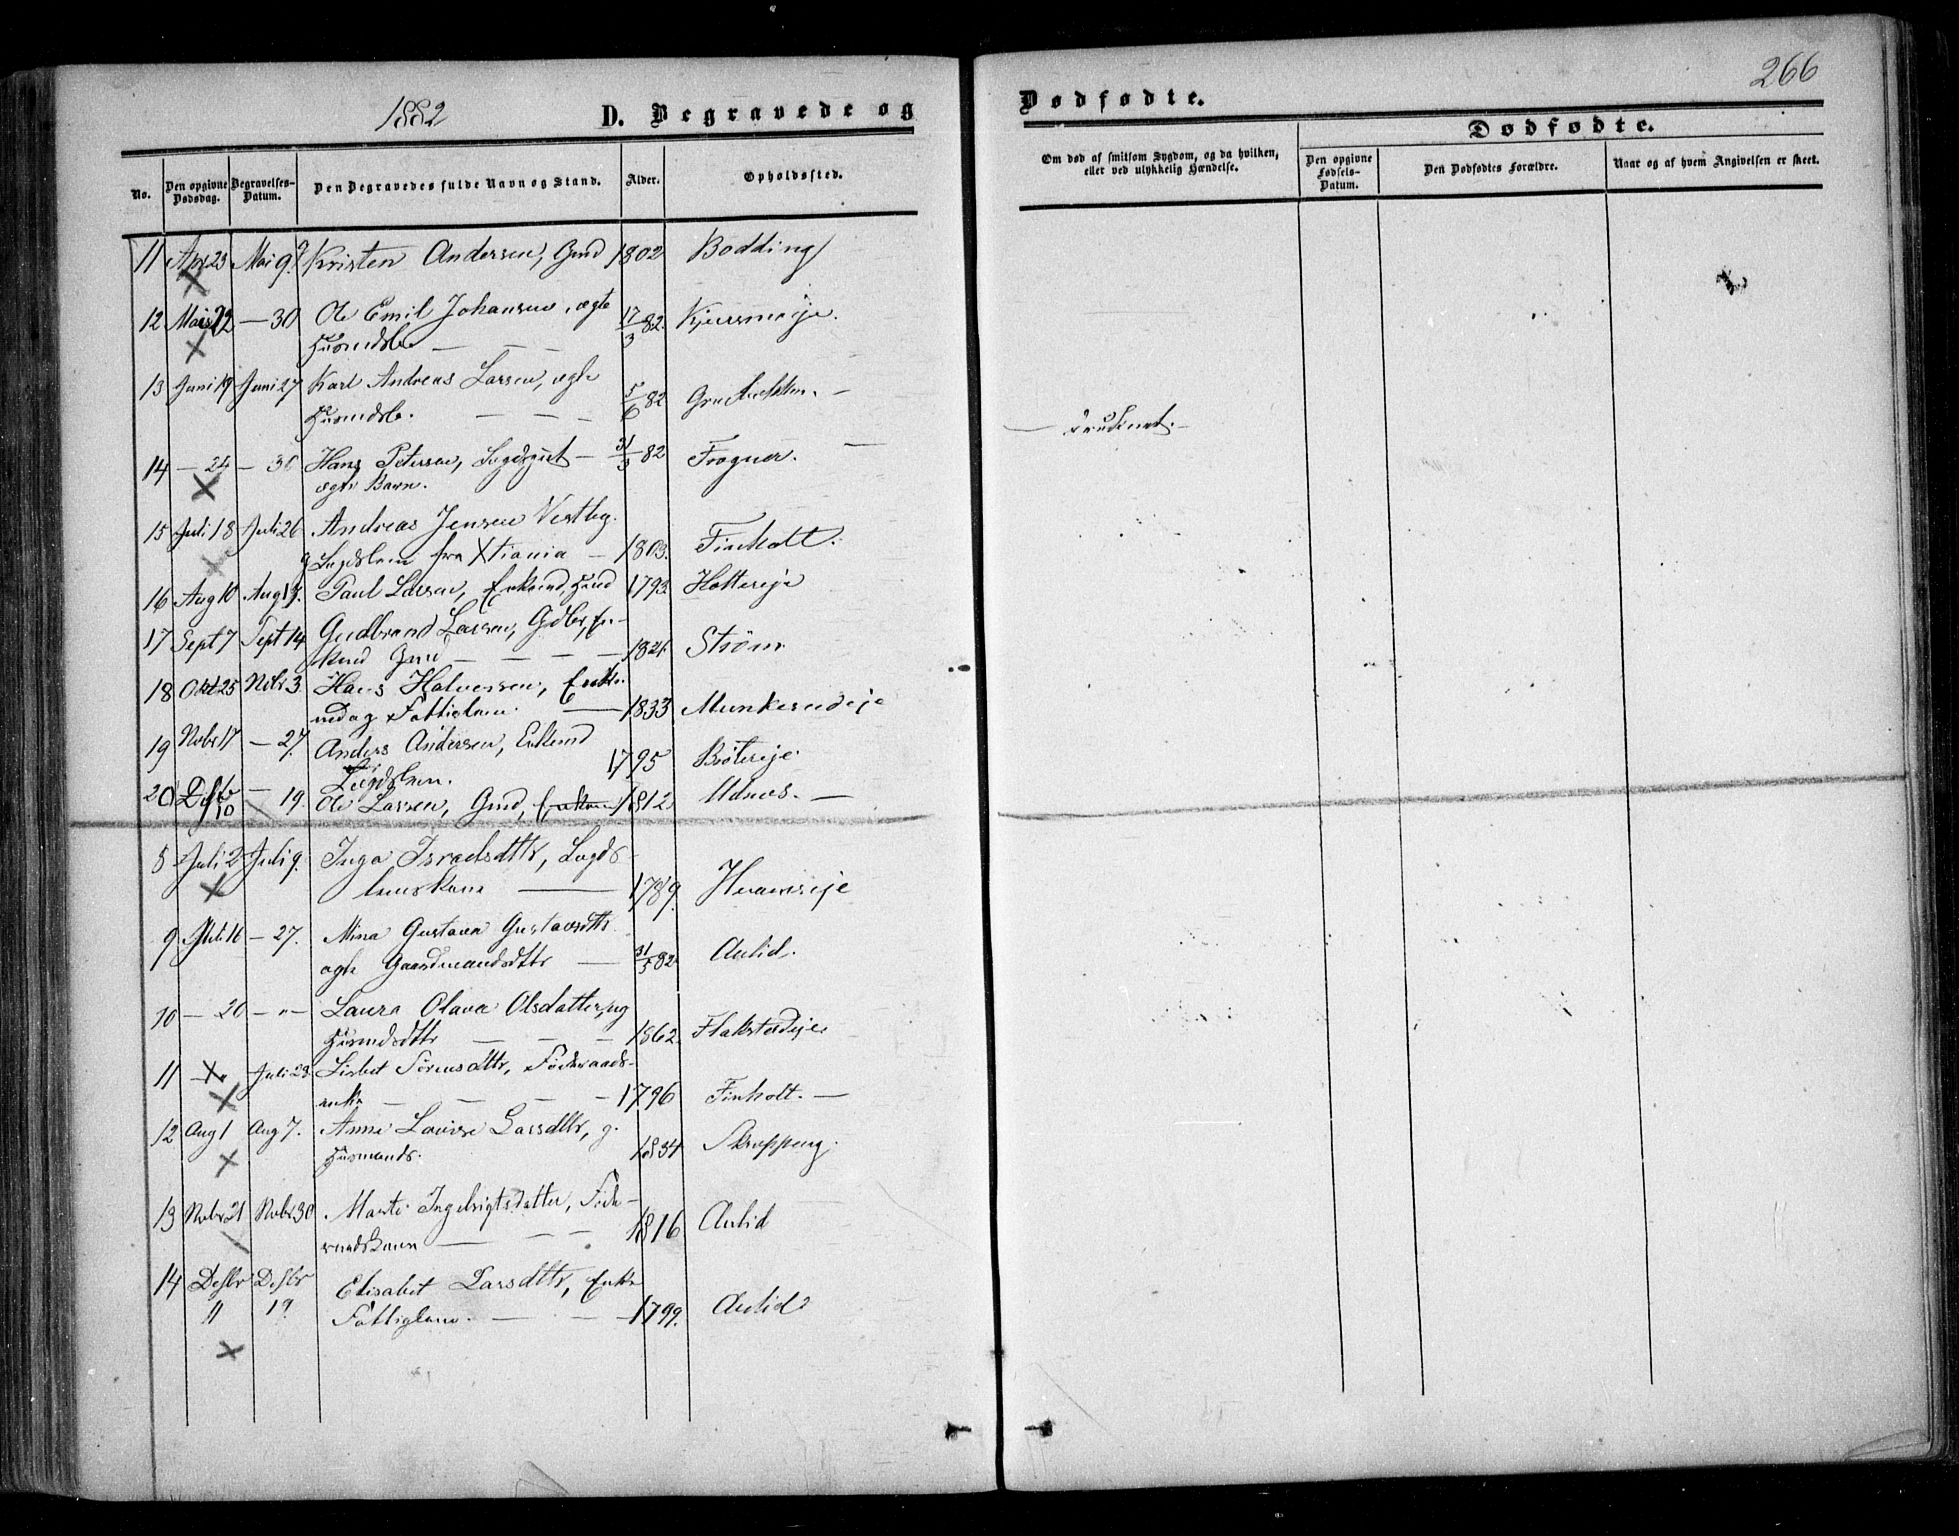 1882 D. Begravede og Dødfødte. 266
No. Den opgivne Dødsdag. Begravelses-Datum. Den Begravedes fulde Navn og Stand. Alder. Opholdssted.
Om død af smitsom Sygdom, og da hvilken, eller ved ulykkelig Hændelse. Dødfødte. Den opgivne Fødsels-Datum. Den Dødfødtes Forældre. Naar og af hvem Angivelsen er skeet.
11 Apr 23 Mai 9 Kristen Andersen, Gmd 1802 Bodding
12 Mai 22 — 30 Ole Emil Johansen, ægte 17/3 82.
Husmdsb. — — —
13 Juni 19 Juni 27 Karl Andreas Larsen, ægte
Husmdsb. — — — 5/6 82
14 — 24 — 30 Hans Petersen, Lægdsgut — 31/3 82 Frogner. —
ægte Barn.
15 Juli 18 Juli 26 Andreas Jensen Vestby.
g Lægdslem fra Xtiania — 1803. Finholt.
16 Aug 10 Aug 17. Paul Larsen, Enkemd, Husmd 1793 Holtereje
17 Sept 7 Sept 14 Gudbrand Larsen, Gdbr, En-
kmd Gmd — — — — Strøm
18 Okt 25 Nvbr 3 Hans Halvorsen, Enke-
md og Fattiglem. — 1833 Munkerudeje
19 Nvbr 17 — 27. Anders Andersen, Enkemd
Lægdslem. 1795
20 Desbr 10 — 19. Ole Larsen, Gmd, 1812 Udnes. —
5 Juli 2 Juli 9. Inga Israelsdttr, Lægds-
lemskone — 1789. Hvamseje
9 Juli 16 — 27. Mina Gustava Gustavsdttr
ægte Gaardmandsdttr — 31/5 82 Aulid.
10 — 20 — " — Laura Olava Olsdatter, ug
Husmdsdttr — — — 1862. Flakstadeje
11 Juli 23. Lisbet Sørensdttr, Føderaads-
enke — — — — 1796 Finholt. —
12 Aug 1 Aug 7. Anne Lovise Larsdttr, g.
Husmands. 1834 Skroppeng.
13 Nvbr 21 Nvbr 30 Marte Ingebrigtsdatter, Føde-
raadskone — — — 1816 Aulid
14 Desbr 11 Desbr 19 Elisabet Larsdttr, Enke
Fattiglem. — — — 1799. Aulid